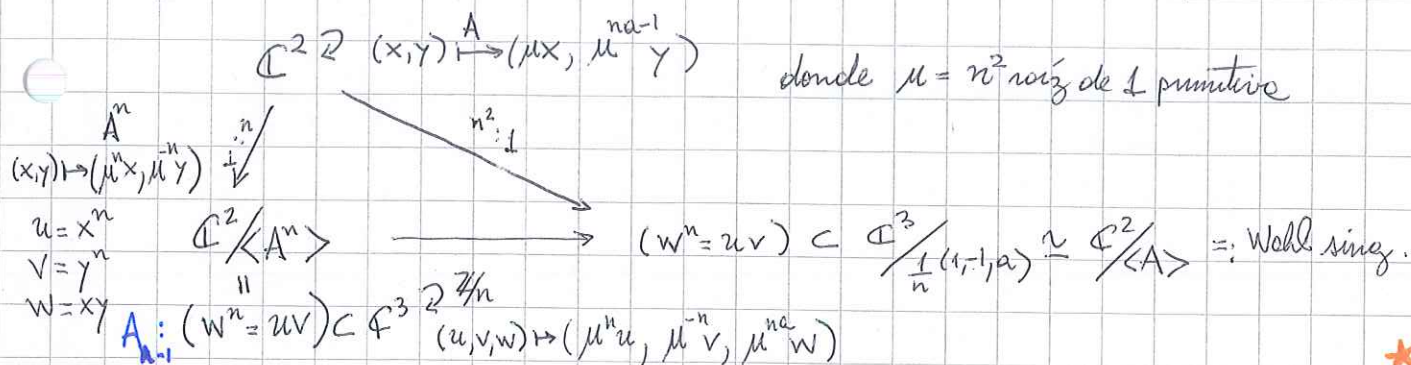 ℂ² ⟲ (x,y) ↦^A (μx, μ^{na-1} y)
donde μ = n² raíz de 1 primitiva
n²:1
A^n
(x,y) ↦ (μ^n x, μ^{-n} y)
n:1
u = x^n
v = y^n
w = xy
ℂ²/<A^n> → (w^n = uv) ⊂ ℂ³/_{1/n (1,-1,a)} ≃ ℂ²/<A> =: Wahl sing.
||
A_{n-1}: (w^n = uv) ⊂ ℂ³ ⟲ ℤ/n
(u,v,w) ↦ (μ^n u, μ^{-n} v, μ^{na} w)